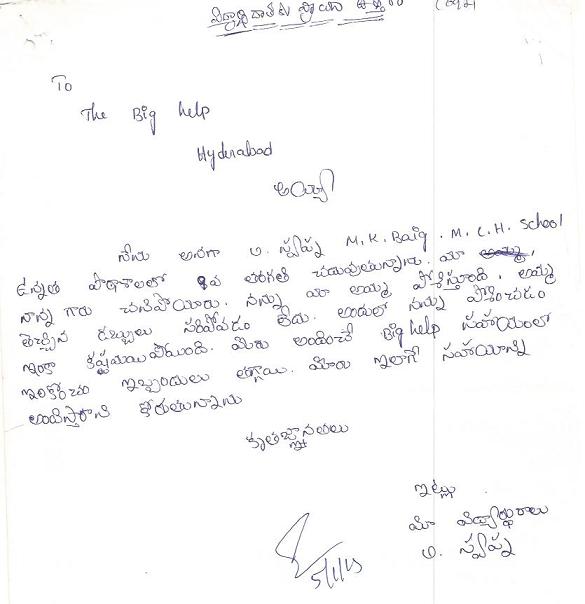 To
The Big help
Hyderabad
అయ్యా
నేను అనగా ఎ. స్వప్న M.K. Baig. M.C.H. School
ఉన్నత పాఠశాలలో 8వ తరగతి చదువుతున్నాను. మా
నాన్న గారు చనిపోయారు. నన్ను మా అమ్మ పోశిస్తుంది. అమ్మ
తెచ్చిన డబ్బులు సరిపోవడం లేదు. అందులో నన్ను పోశించడం
ఇంకా కష్టమయిపోయింది. మీరు అందించే Big help సహాయంలో
ఇంకొంచం ఇబ్బందులు తగ్గాయి. మీరు ఇలాగే సహాయాన్ని
అందిస్తారాని కోరుతున్నాను
కృతజ్ఞతలు
ఇట్లు
మీ విద్యార్థురాలు
ఎ. స్వప్న